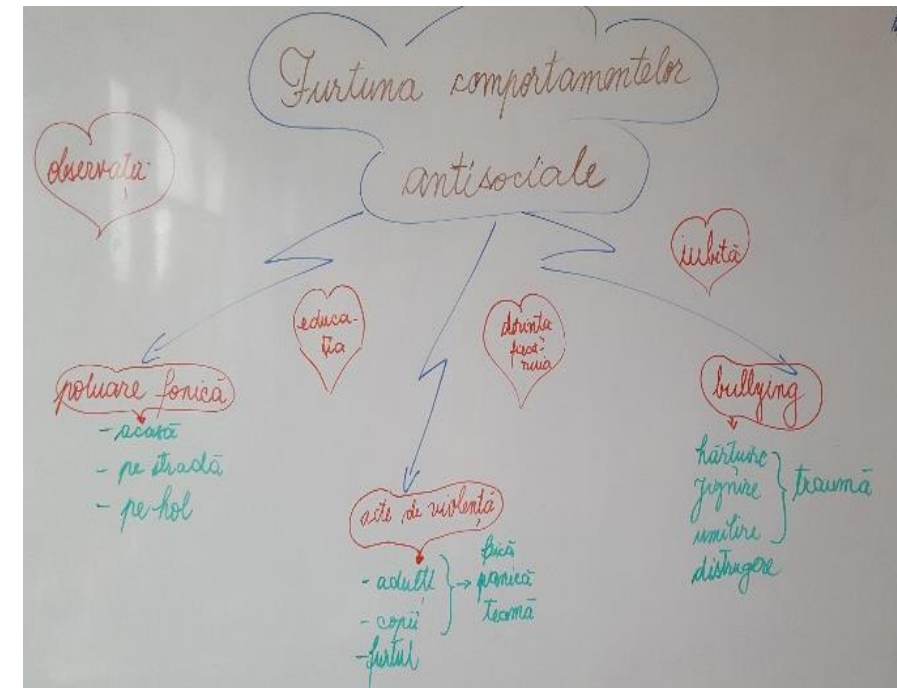 Furtuna comportamentelor
antisociale
observația
iubită
educa-
ția
dorința
fiecă-
ruia
poluare fonică
- acasă
- pe stradă
- pe hol
acte de violență
- adulți
- copii
- furtul
frică
panică
teamă
bullying
hărțuire
jignire
umilire
distrugere
traumă